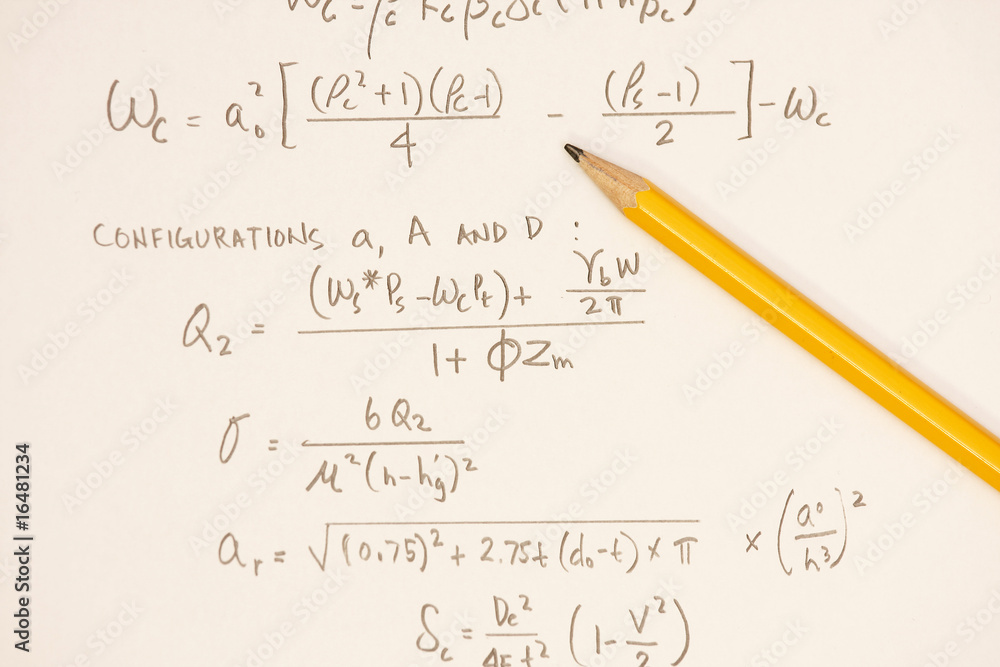 ω_c = a_o^2 [ (P_c^2+1)(P_c-1) / 4 - (P_s-1) / 2 ] - ω_c
CONFIGURATIONS a, A AND D :
Q_2 = ( (W_s* P_s - W_c P_t) + γ_b W / 2π ) / ( 1 + ϕ Z_m )
σ = 6 Q_2 / ( μ^2 (h-h'_g)^2 )
a_r = √( (0.75)^2 + 2.75t (d_o-t) × π ) × ( a^o / h^3 )^2
δ_c = D_c^2 / 4E t^2 ( 1 - V^2 / 2 )
Adobe Stock | #16481234